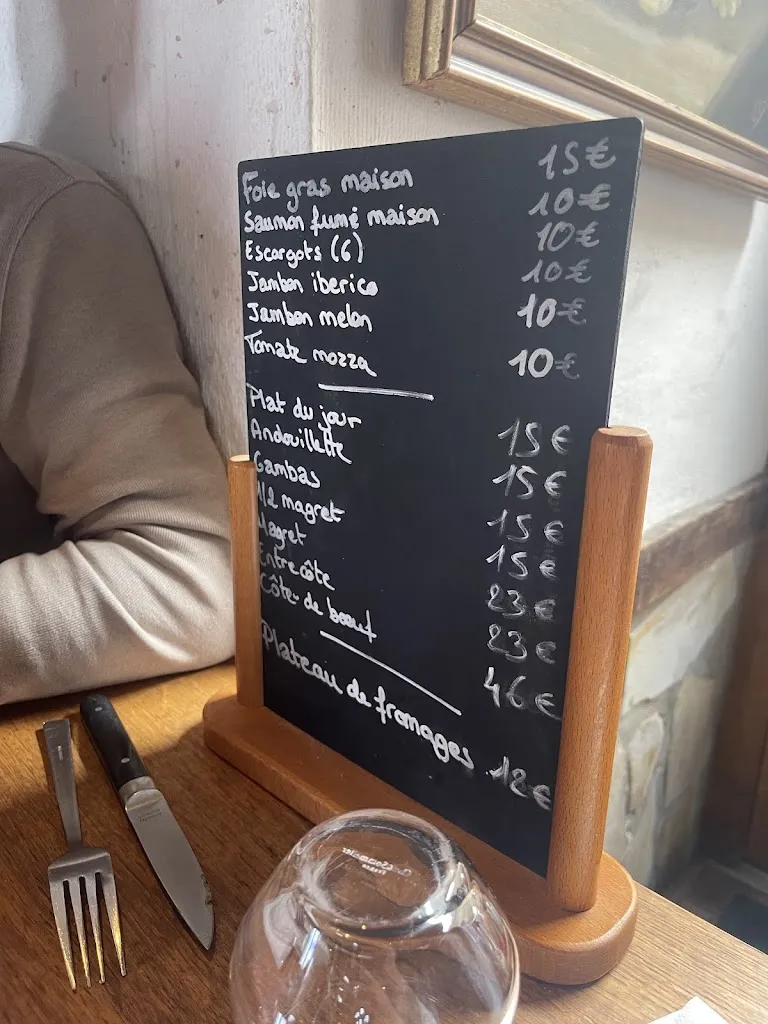 Foie gras maison 15€
Saumon fumé maison 10€
Escargots (6) 10€
Jambon iberico 10€
Jambon melon 10€
Tomate mozza 10€
Plat du jour 15€
Andouillette 15€
Gambas 15€
1/2 magret 15€
Magret 23€
Entrecôte 23€
Côte de bœuf 46€
Plateau de fromages 12€